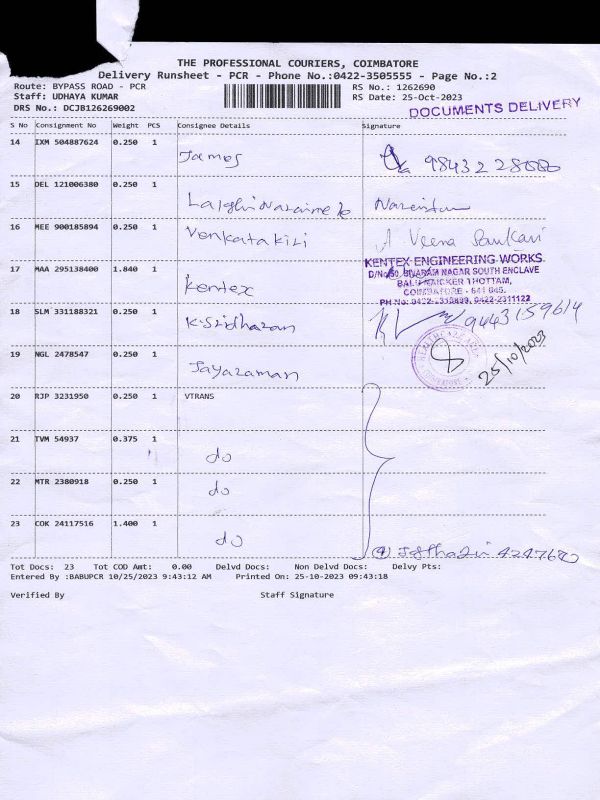 THE PROFESSIONAL COURIERS, COIMBATORE
Delivery Runsheet - PCR - Phone No.:0422-3505555 - Page No.:2
Route: BYPASS ROAD - PCR RS No.: 1262690
Staff: UDHAYA KUMAR RS Date: 25-Oct-2023
DRS No.: DCJB126269002 DOCUMENTS DELIVERY
S No Consignment No Weight PCS Consignee Details Signature
14 IXM 504887624 0.250 1 James
15 DEL 121006380 0.250 1
16 MEE 900185894 0.250 1 Venkatakiri Veena Sankari
17 MAA 295138400 1.840 1 Kentex
KENTEX ENGINEERING WORKS.
D/No. SIVARAM NAGAR SOUTH ENCLAVE
THOTTAM,
COIMBATORE - 641 045.
PH No: 0422-2315899, 0422-2311122
18 SLM 331188321 0.250 1 K.Sridharan 9443159614
19 NGL 2478547 0.250 1 Jayaraman 25/10/2023
20 RJP 3231950 0.250 1 VTRANS
21 TVM 54937 0.375 1 do
22 MTR 2380918 0.250 1 do
23 COK 24117516 1.400 1 do
(4)
Tot Docs: 23 Tot COD Amt: 0.00 Delvd Docs: Non Delvd Docs: Delvy Pts:
Entered By :BABUPCR 10/25/2023 9:43:12 AM Printed On: 25-10-2023 09:43:18
Verified By Staff Signature